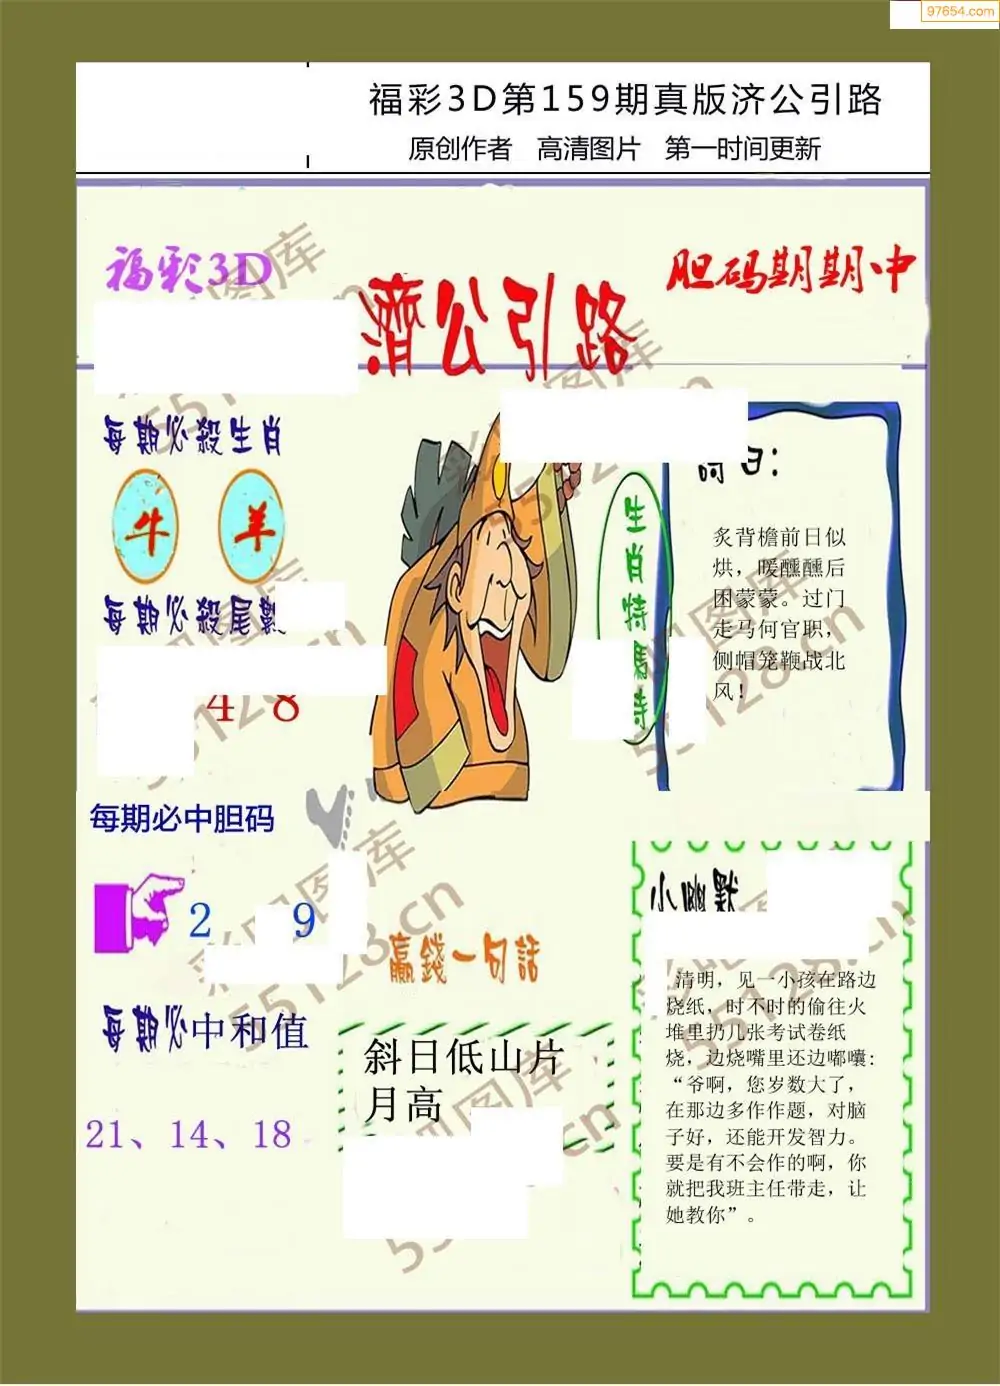 97654.com
福彩3D第159期真版济公引路
原创作者 高清图片 第一时间更新
福彩3D
胆码期期中
濟公引路
每期必殺生肖
牛 羊
每期必殺尾數
4 8
生肖特馬詩
詩曰:
炙背檐前日似
烘，暖醺醺后
困蒙蒙。过门
走马何官职，
侧帽笼鞭战北
风！
每期必中胆码
2 9
每期必中和值
21、14、18
贏錢一句話
斜日低山片
月高
小幽默
清明，见一小孩在路边
烧纸，时不时的偷往火
堆里扔几张考试卷纸
烧，边烧嘴里还边嘟囔:
“爷啊，您岁数大了，
在那边多作作题，对脑
子好，还能开发智力。
要是有不会作的啊，你
就把我班主任带走，让
她教你”。
彩吧图库
55128.cn